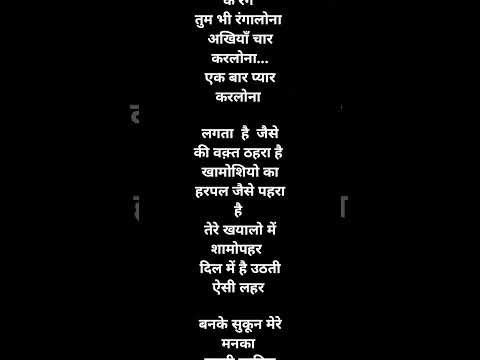 के रंग
तुम भी रंगालोना
अखियाँ चार
करलोना...
एक बार प्यार
करलोना
लगता है जैसे
की वक़्त ठहरा है
खामोशियो का
हरपल जैसे पहरा
है
तेरे खयालो में
शामोपहर
दिल में है उठती
ऐसी लहर
बनके सुकून मेरे
मनका